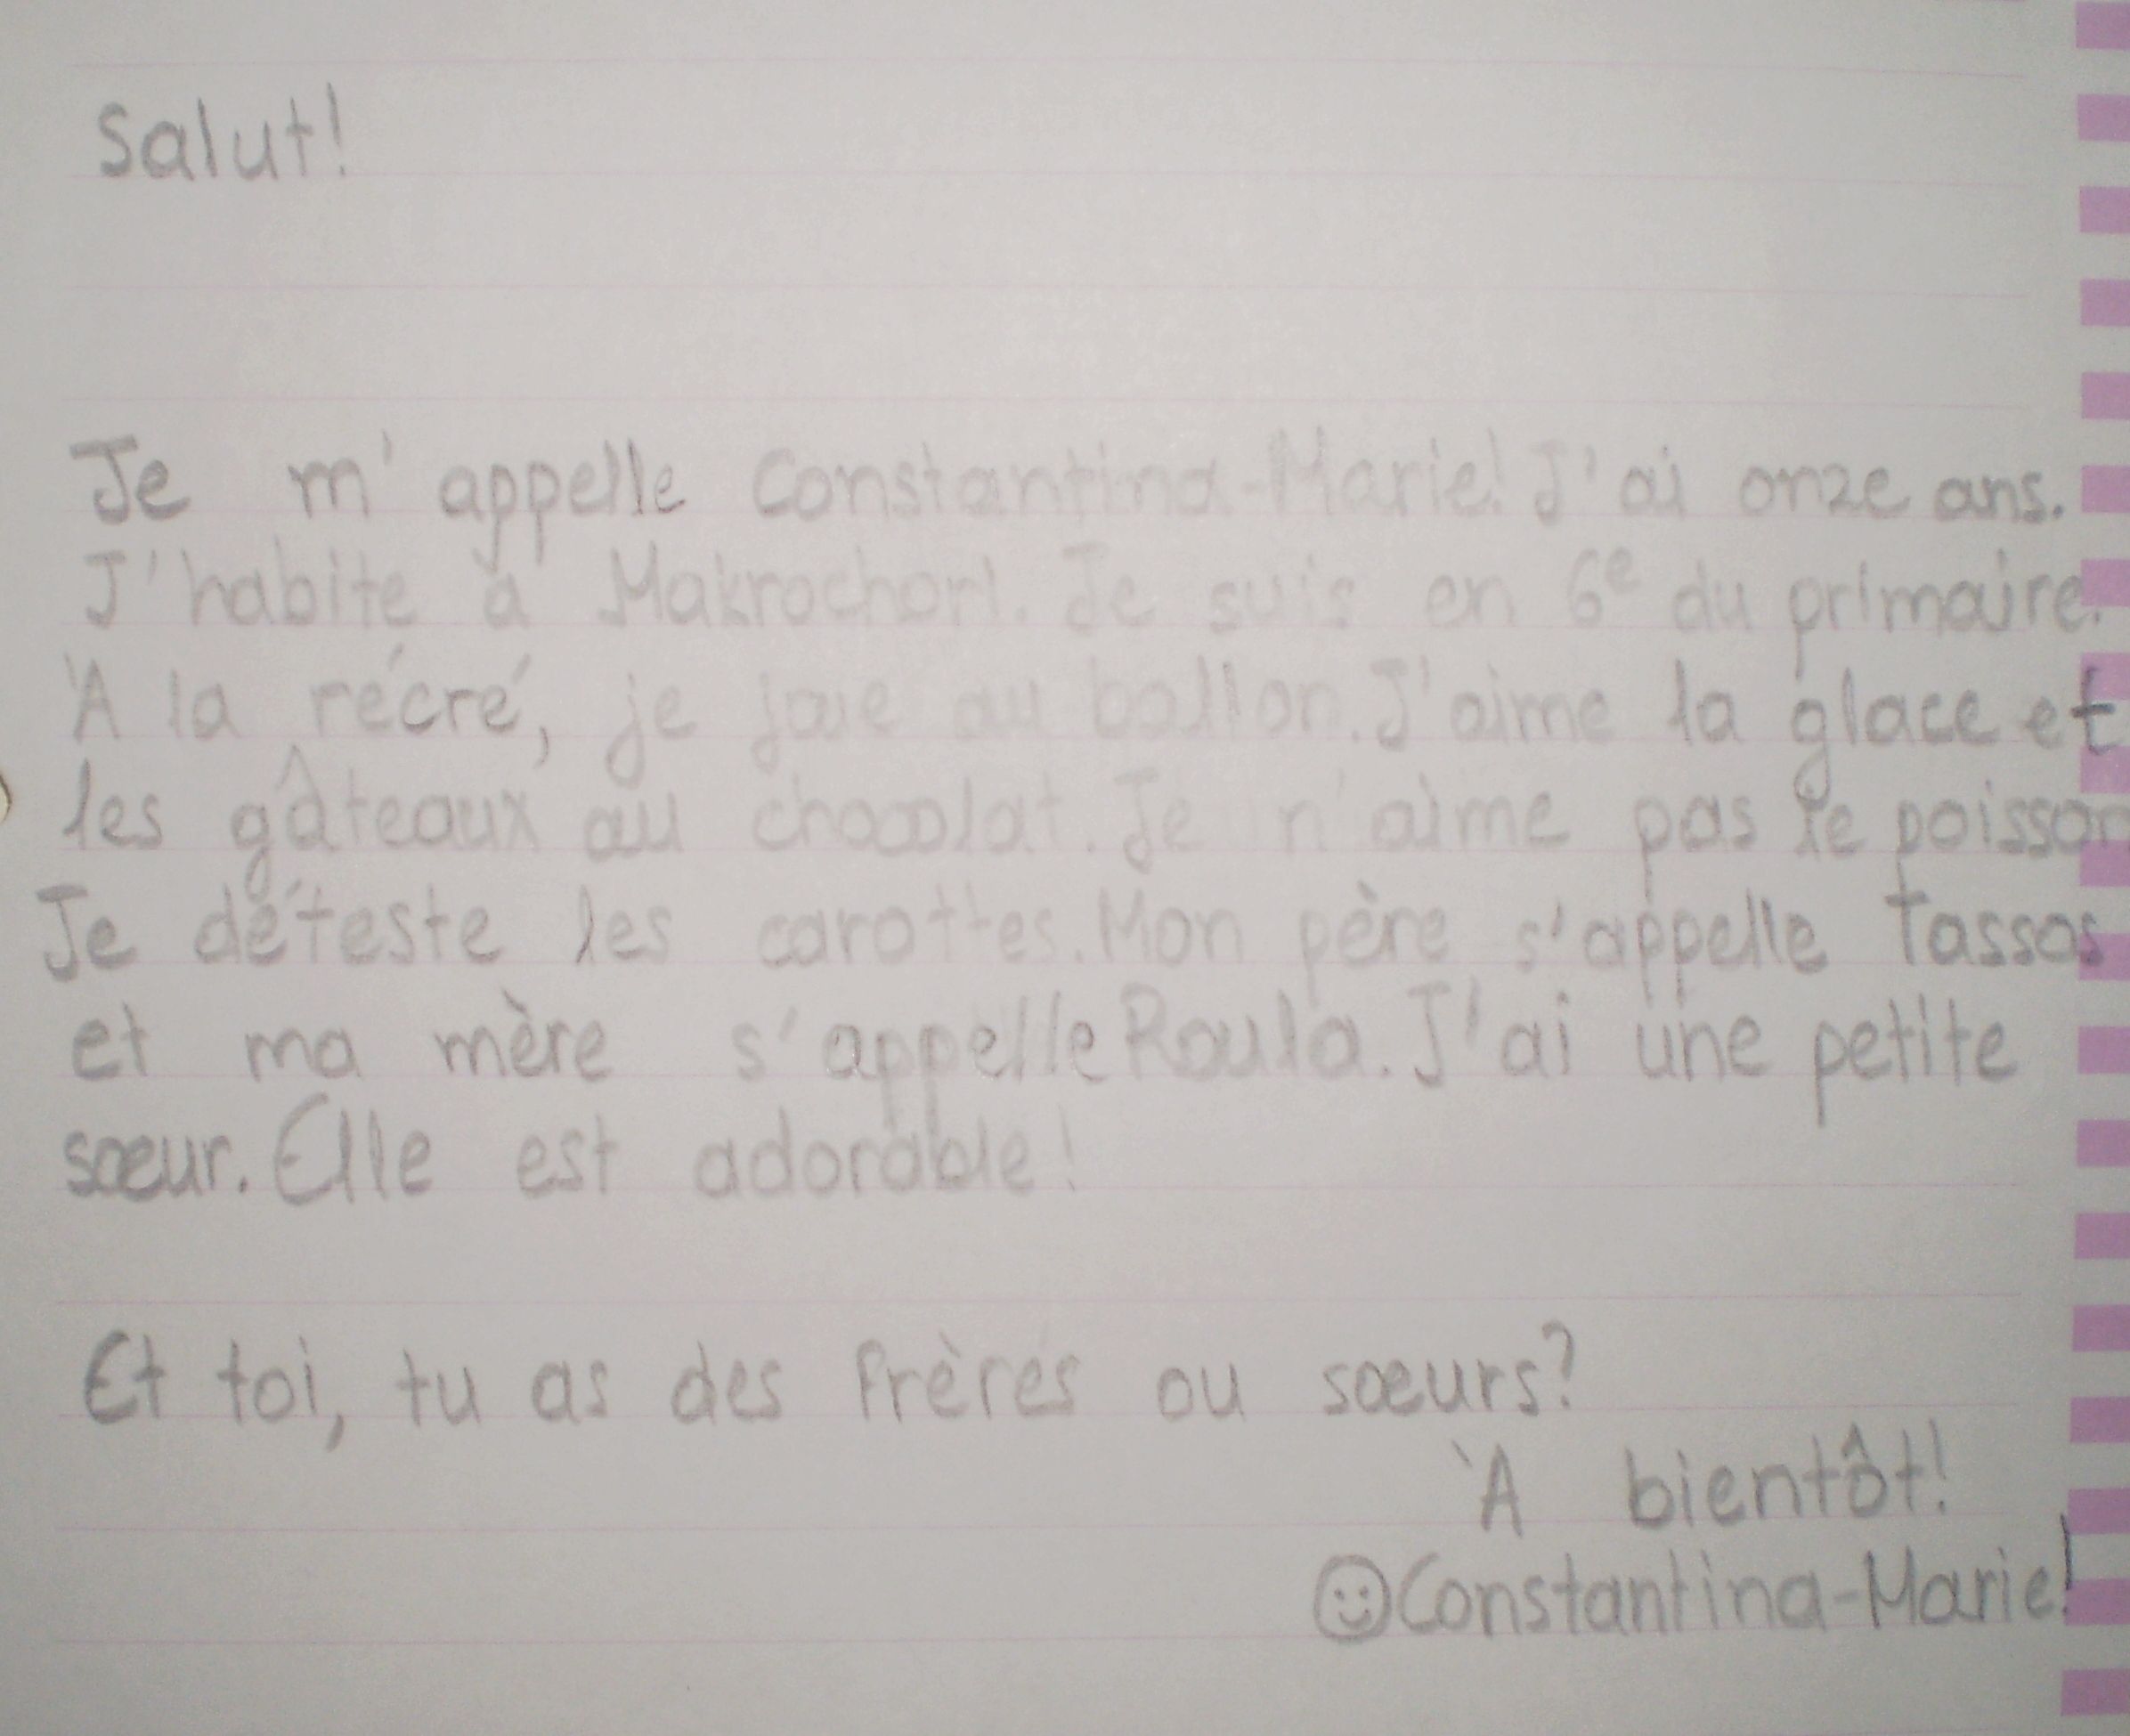 Salut!
Je m'appelle Constantina-Marie! J'ai onze ans.
J'habite à Makrochori. Je suis en 6e du primaire.
À la récré, je joue au ballon. J'aime la glace et
les gâteaux au chocolat. Je n'aime pas le poisson
Je déteste les carottes. Mon père s'appelle Tassos
et ma mère s'appelle Roula. J'ai une petite
sœur. Elle est adorable!
Et toi, tu as des frères ou sœurs?
À bientôt!
☺Constantina-Marie!